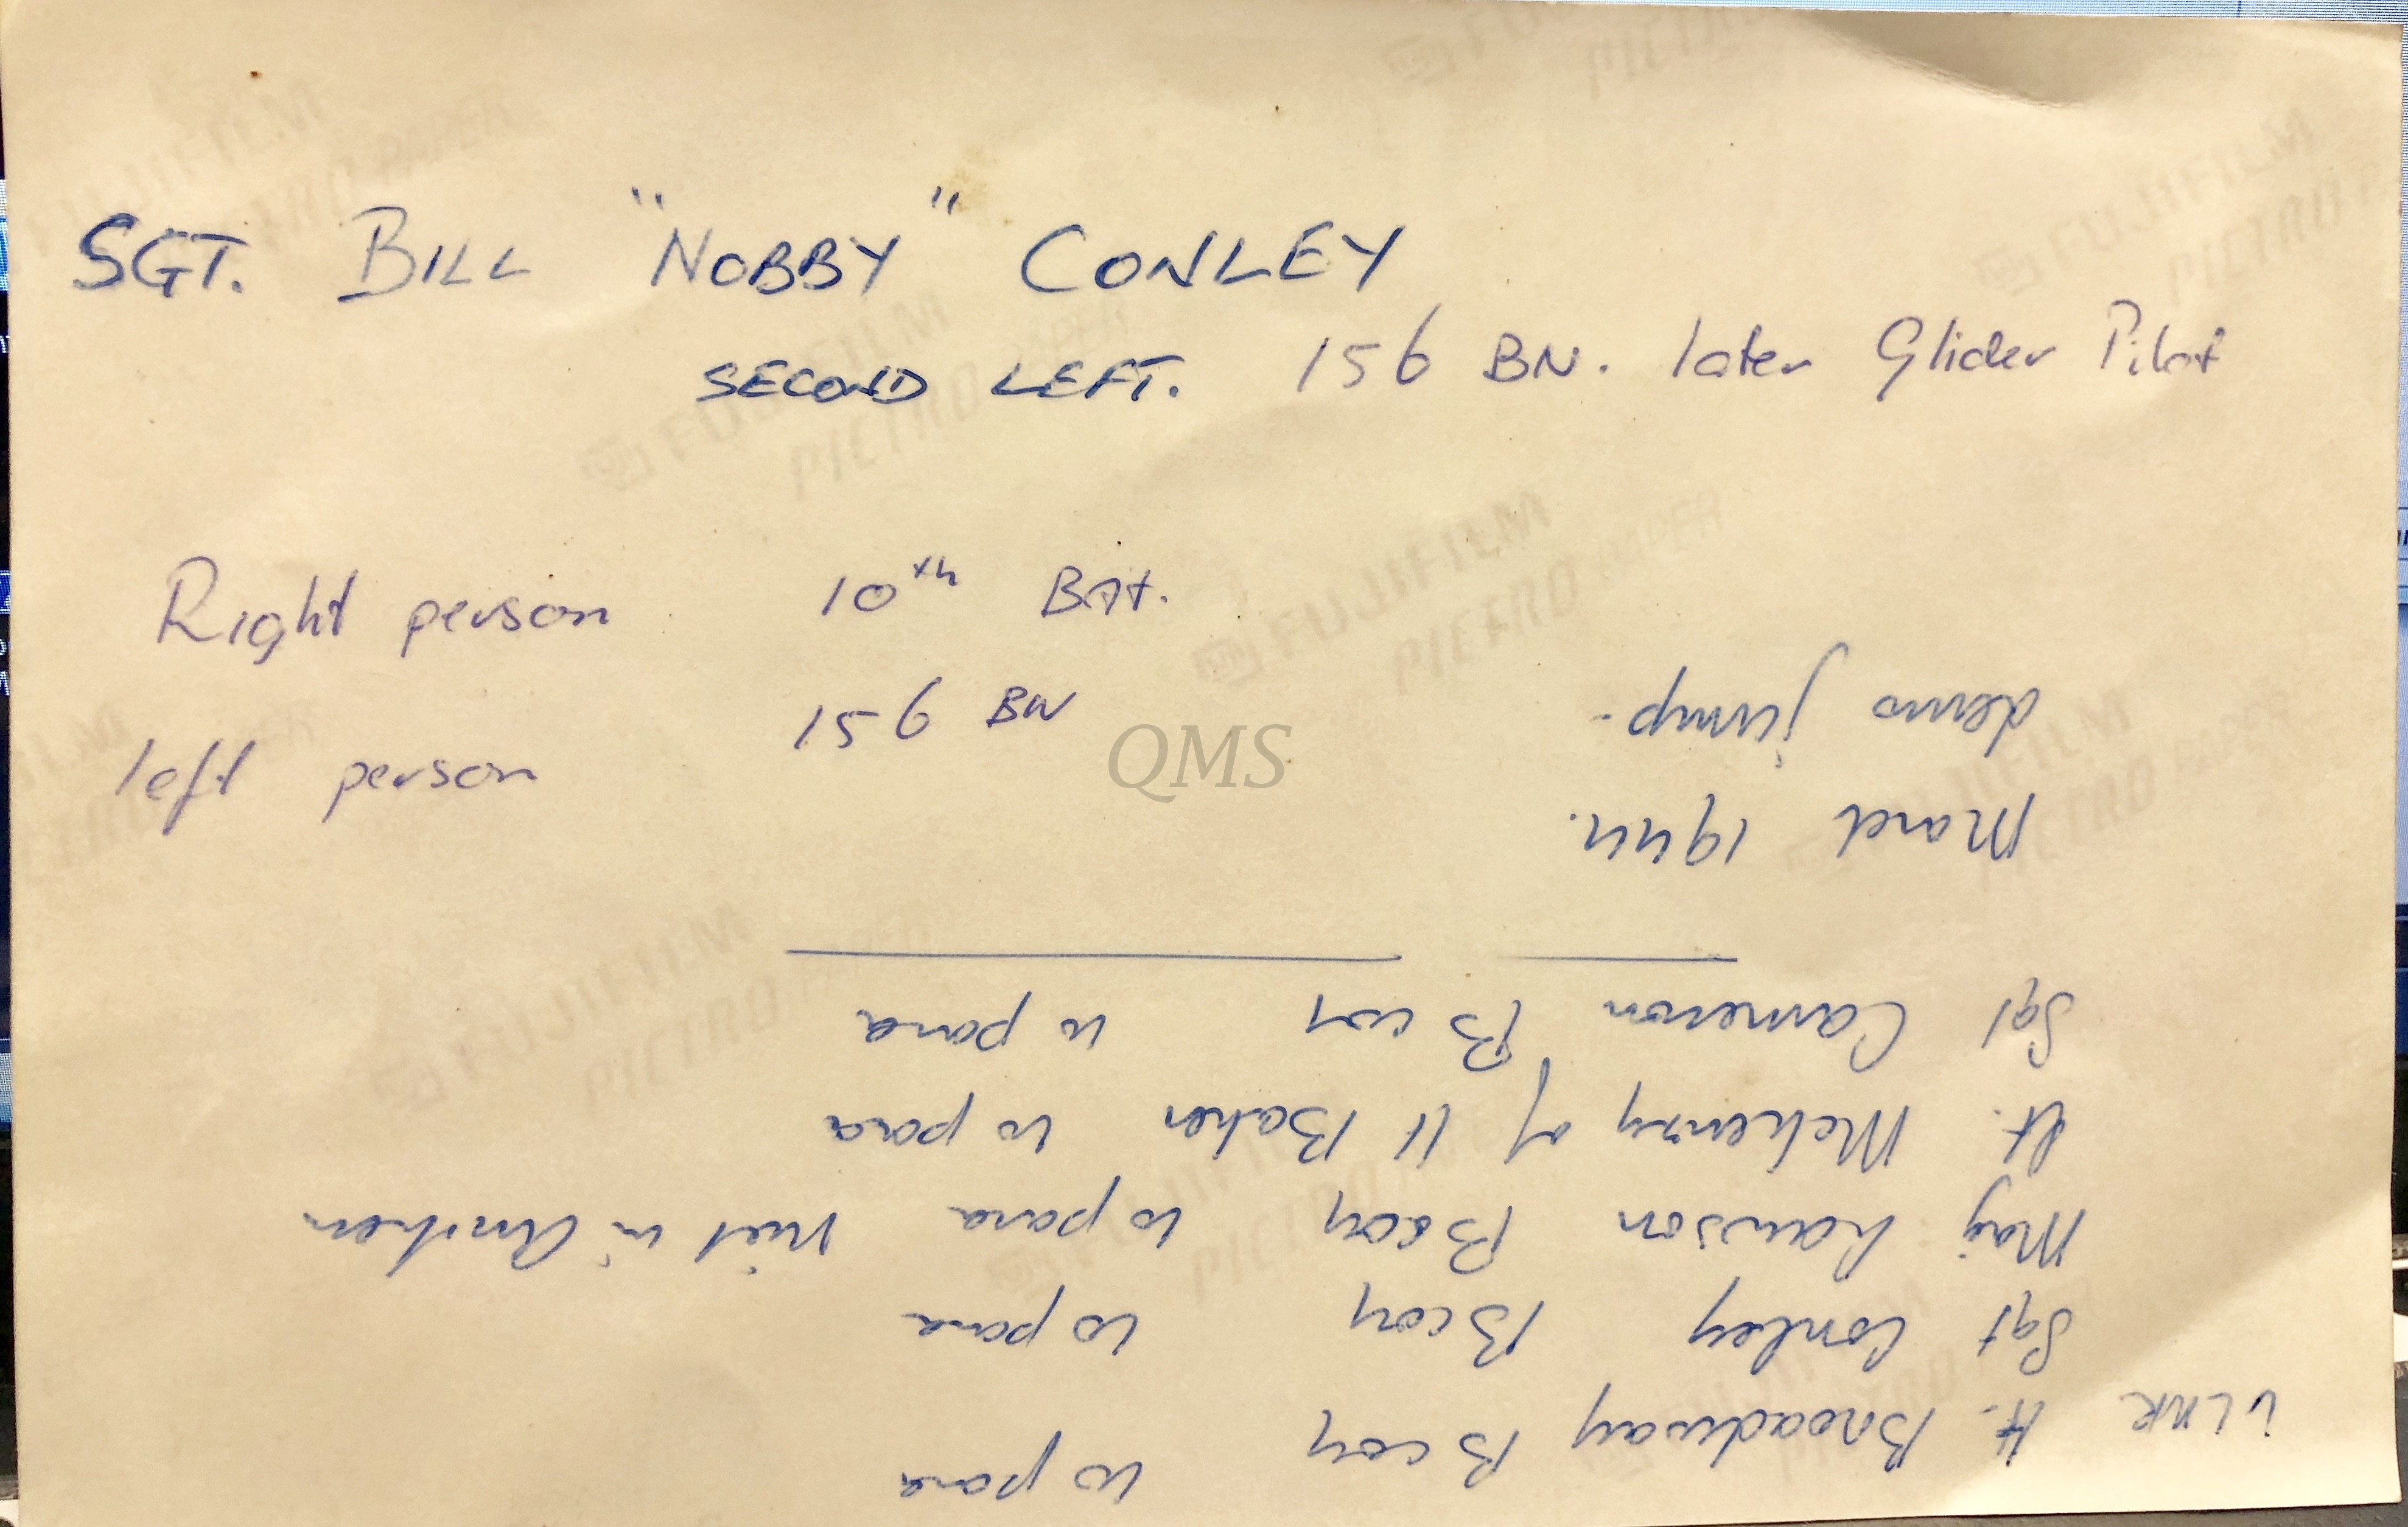 SGT. BILL "NOBBY" CONLEY
SECOND LEFT. 156 BN. later Glider Pilot
Right person 10th BAt.
left person 156 BN
QMS
VLNR Lt. Broadway B coy 10 para
Sgt Conley B coy 10 para
Maj B coy 10 para niet in Arnhem
Lt. McKenzy of Lt Baker 10 para
Sgt Cameron B coy 10 para
March 1944.
demo jump.
FUJIFILM
PICTRO PAPER